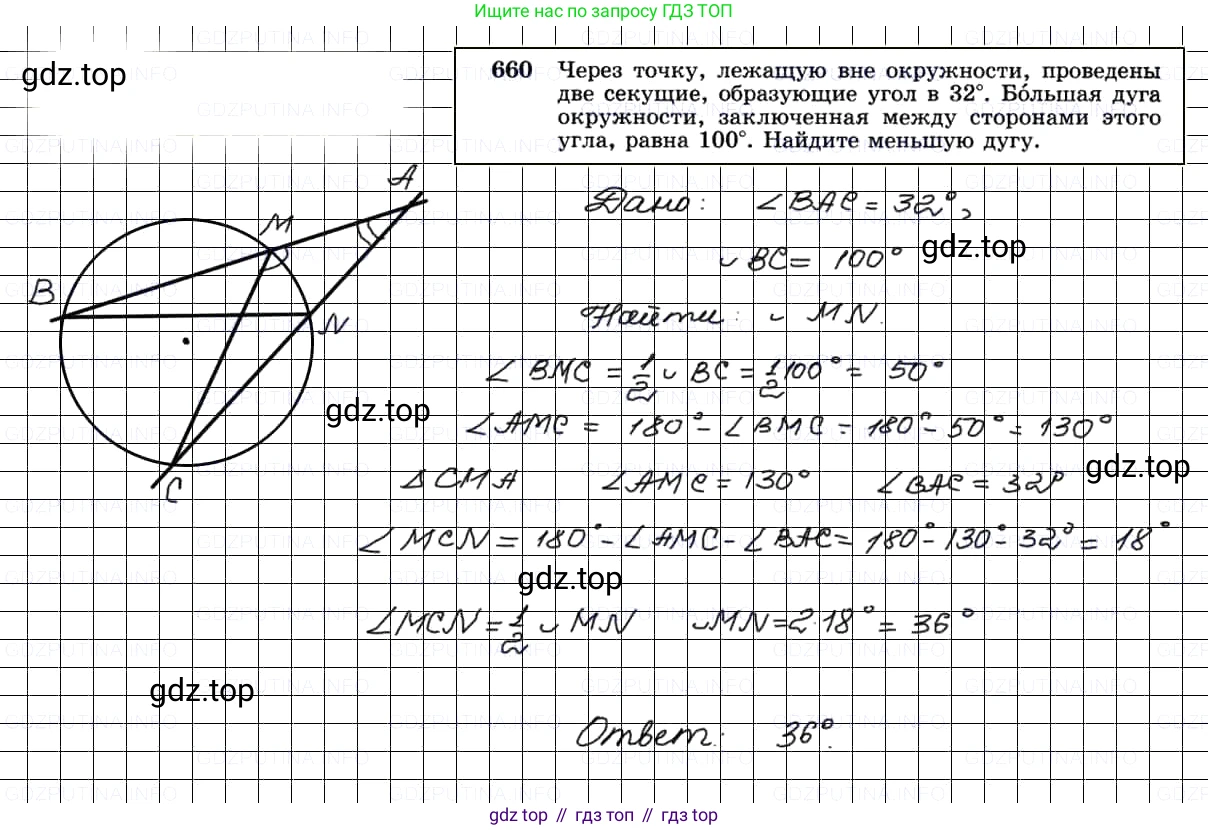 Ищите нас по запросу ГДЗ ТОП
gdz.top
660 Через точку, лежащую вне окружности, проведены
две секущие, образующие угол в 32°. Бо́льшая дуга
окружности, заключенная между сторонами этого
угла, равна 100°. Найдите меньшую дугу.
A
M
B
N
C
Дано: ∠BAC = 32°,
◡ BC = 100°
gdz.top
Найти: ◡ MN.
∠ BMC = 1/2 ◡ BC = 1/2 100° = 50°
gdz.top
∠AMC = 180° - ∠BMC = 180° - 50° = 130°
gdz.top
Δ CMA ∠AMC = 130° ∠BAC = 32°
∠MCN = 180° - ∠AMC - ∠BAC = 180° - 130° - 32° = 18°
gdz.top
∠MCN = 1/2 ◡ MN ◡MN = 2·18° = 36°
gdz.top
Ответ: 36°.
gdz top // гдз топ // gdz top
GDZPUTINA.INFO